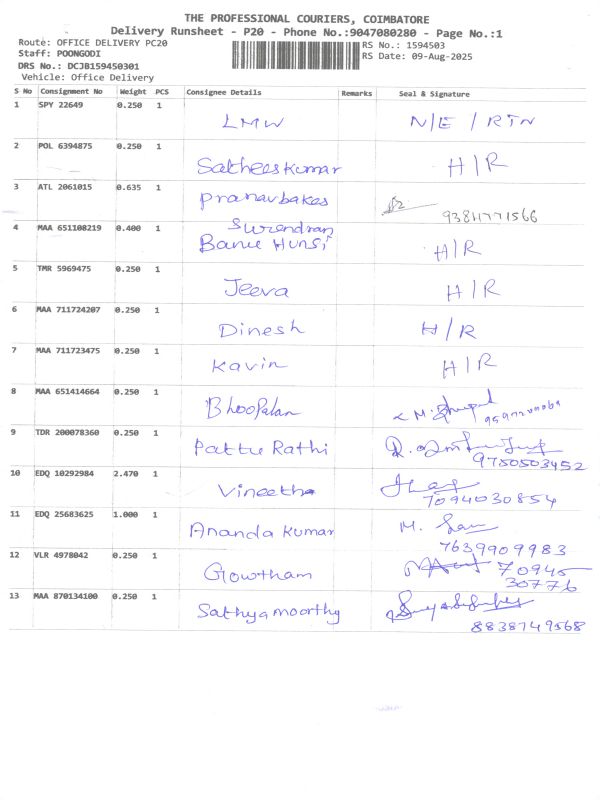 THE PROFESSIONAL COURIERS, COIMBATORE
Delivery Runsheet - P20 - Phone No.:9047080280 - Page No.:1
Route: OFFICE DELIVERY PC20 RS No.: 1594503
Staff: POONGODI RS Date: 09-Aug-2025
DRS No.: DCJB159450301
Vehicle: Office Delivery
S No Consignment No Weight PCS Consignee Details Remarks Seal & Signature
1 SPY 22649 0.250 1 LMW N/E / RTN
2 POL 6394875 0.250 1 Satheeskumar H/R
3 ATL 2061015 0.635 1 Pranavbakes 9384771566
4 MAA 651108219 0.400 1 Surendran
Banu Hunsi H/R
5 TMR 5969475 0.250 1 Jeeva H/R
6 MAA 711724207 0.250 1 Dinesh H/R
7 MAA 711723475 0.250 1 Kavin H/R
8 MAA 651414664 0.250 1 Bhoopalan
9 TDR 200078360 0.250 1 Pattu Rathi
9750503452
10 EDQ 10292984 2.470 1 Vineetha
7094030854
11 EDQ 25683625 1.000 1 Ananda Kumar M.
7639909983
12 VLR 4978042 0.250 1 Gowtham 70945
30776
13 MAA 870134100 0.250 1 Sathyamoorthy
8838749568